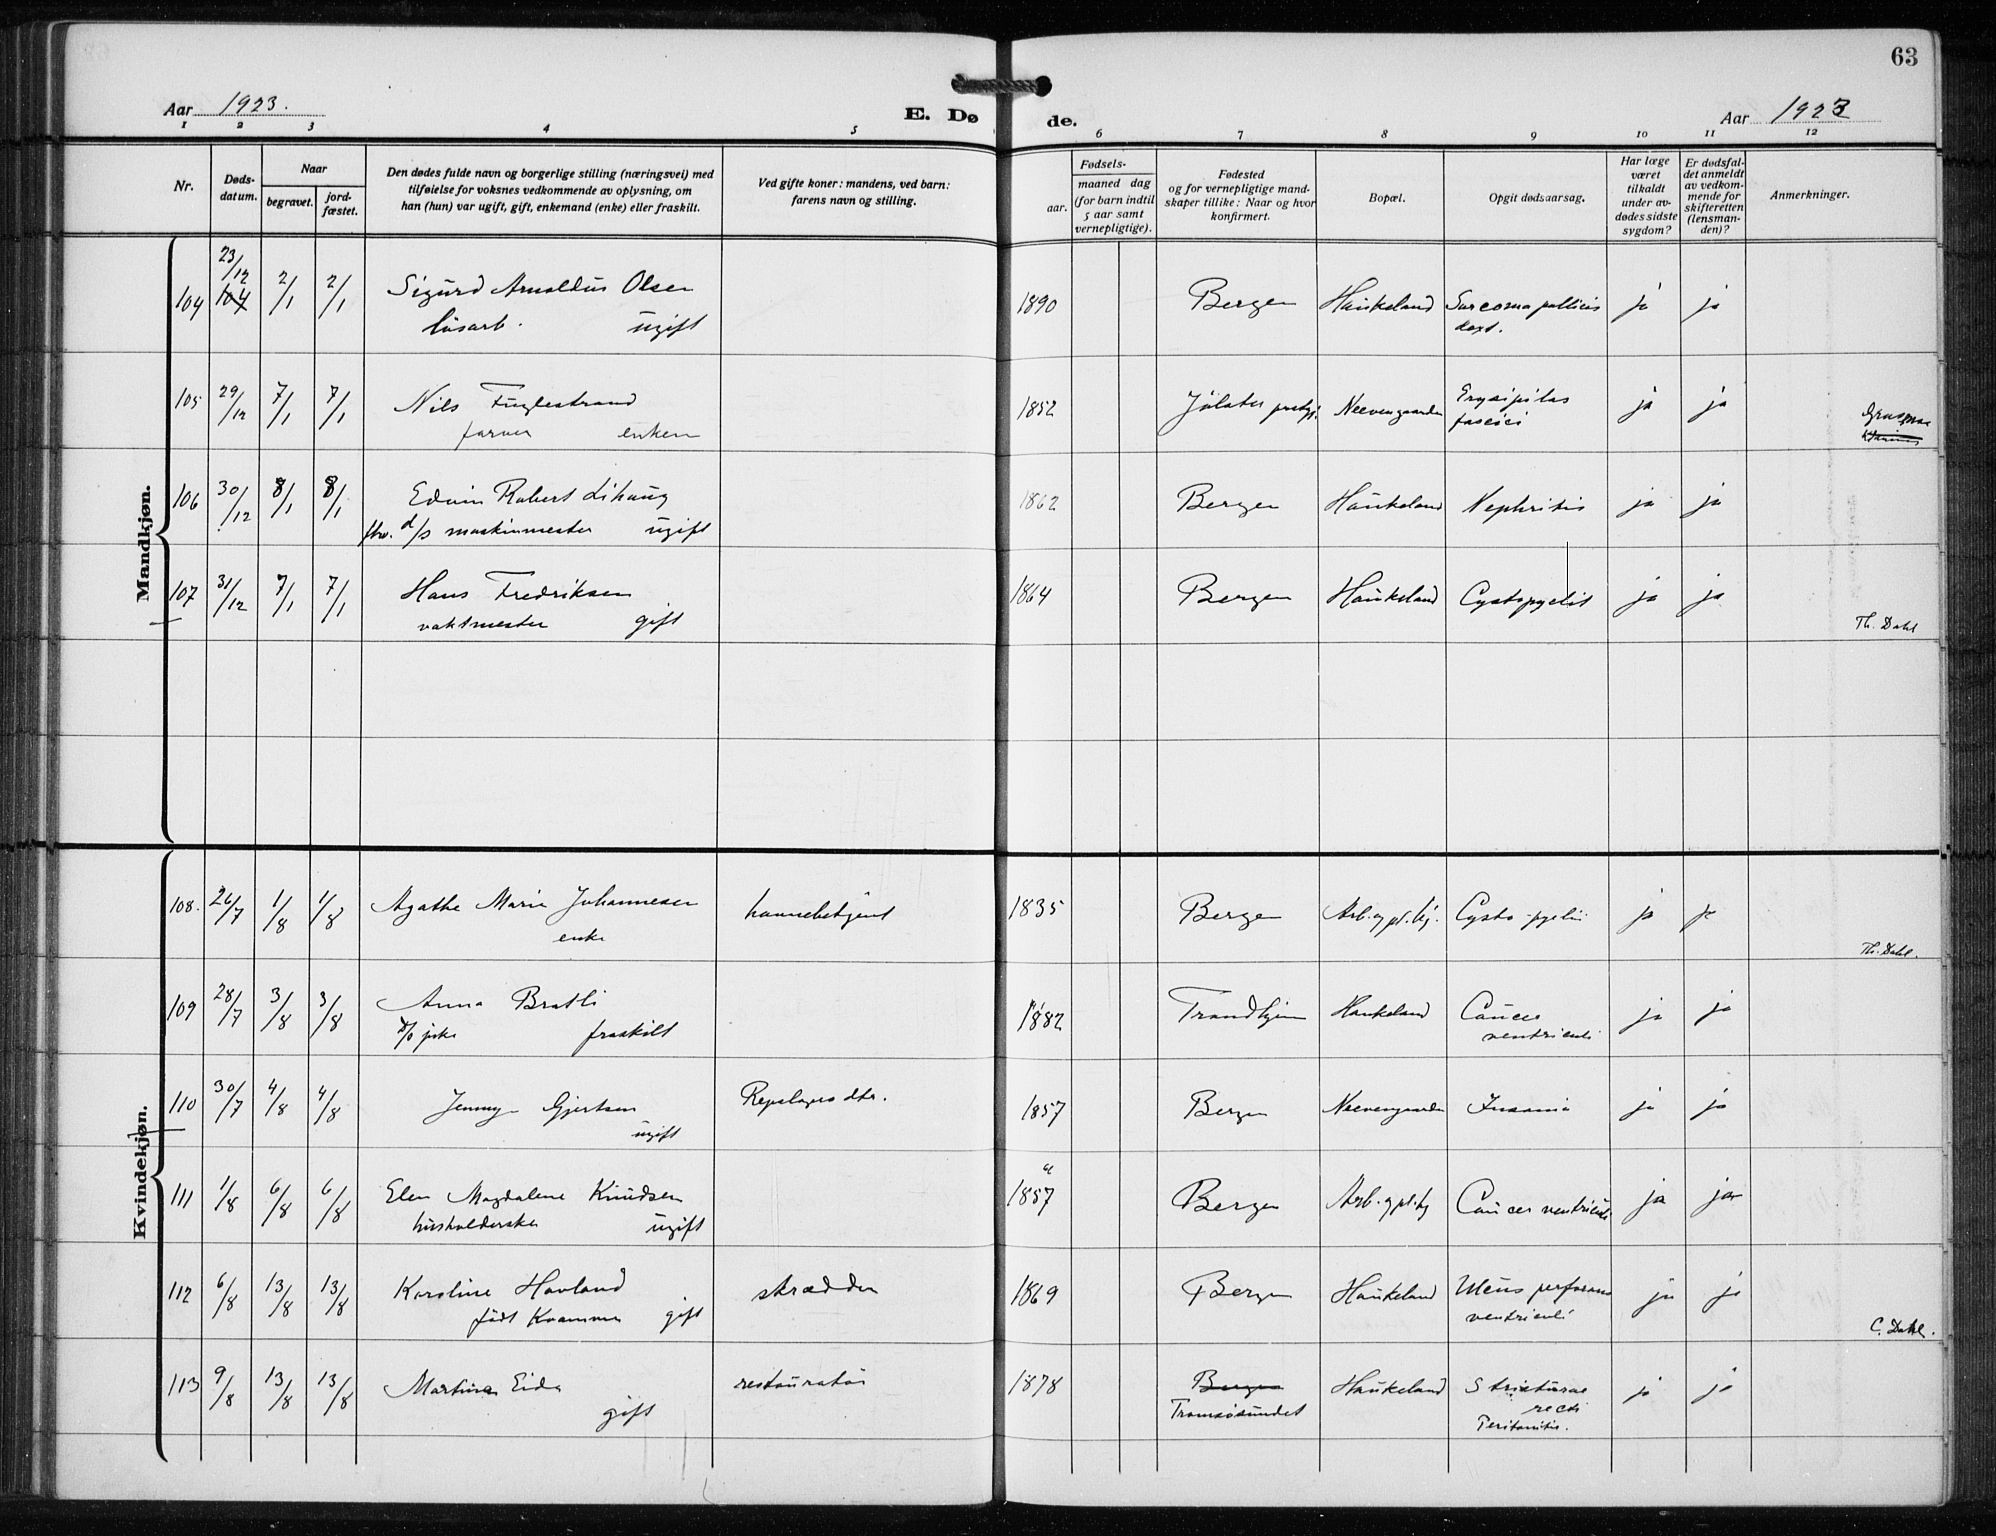 63
Aar 1923. E. Dø de. Aar 1923
1 2 3 4 5 6 7 8 9 10 11 12
Nr. Døds-datum. Naar begravet. jord-fæstet. Den dødes fulde navn og borgerlige stilling (næringsvei) med tilføielse for voksnes vedkommende av oplysning, om han (hun) var ugift, gift, enkemand (enke) eller fraskilt. Ved gifte koner: mandens, ved barn: farens navn og stilling. Fødsels- aar. maaned dag (for barn indtil 5 aar samt vernepligtige). Fødested og for vernepligtige mand-skaper tillike: Naar og hvor konfirmert. Bopæl. Opgit dødsaarsag. Har læge været tilkaldt under av-dødes sidste sygdom? Er dødsfal-det anmeldt av vedkom-mende for skifteretten (lensman-den)? Anmerkninger.
Mandkjøn.
104 23/12 104 2/1 2/1 Sigurd Arnoldus Olsen 1890 Bergen Haukeland Sarcoma pollicis ja ja
løsarb. ugift dext.
105 29/12 7/1 7/1 Nils Fuglestrand 1852 Neevengaarden Erysipelas ja ja
farver enkem fascici
106 30/12 8/1 8/1 Edvin Robert Lihaug 1862 Bergen Haukeland Nephritis ja ja
fhv. d/s maskinmester ugift
107 31/12 7/1 7/1 Hans Fredriksen 1864 Bergen Haukeland Cystopyelit ja ja
vaktmester gift Th. Dahl
Kvindekjøn.
108. 26/7 1/8 1/8 Agathe Marie Johannesen havnebetjent 1835 Bergen Arb. og pl. hj. Cysto-pyelit ja ja
enke Th. Dahl.
109 28/7 3/8 3/8 Anna Bratli 1882 Trondhjem Haukeland Cancer ja ja
fraskilt ventriculi
110 30/7 4/8 4/8 Jenny Gjertsen Repslagers dtr. 1857 Bergen Neevengaarden Insania ja ja
ugift
111 1/8 6/8 6/8 Elen Magdalene Knudsen 1857 Bergen Arb. og pl. hj Cancer ventriculi ja ja
husholderske ugift
112 6/8 13/8 13/8 Karoline Havland skrædder 1869 Bergen Haukeland Ulcus perforans ja ja
født Kvamme gift ventriculi C. Dahl.
113 9/8 13/8 13/8 Martina Eide restauratør 1878 Bergen Haukeland Stricturae ja ja
gift Tromsøsundet recti
Peritonitis.